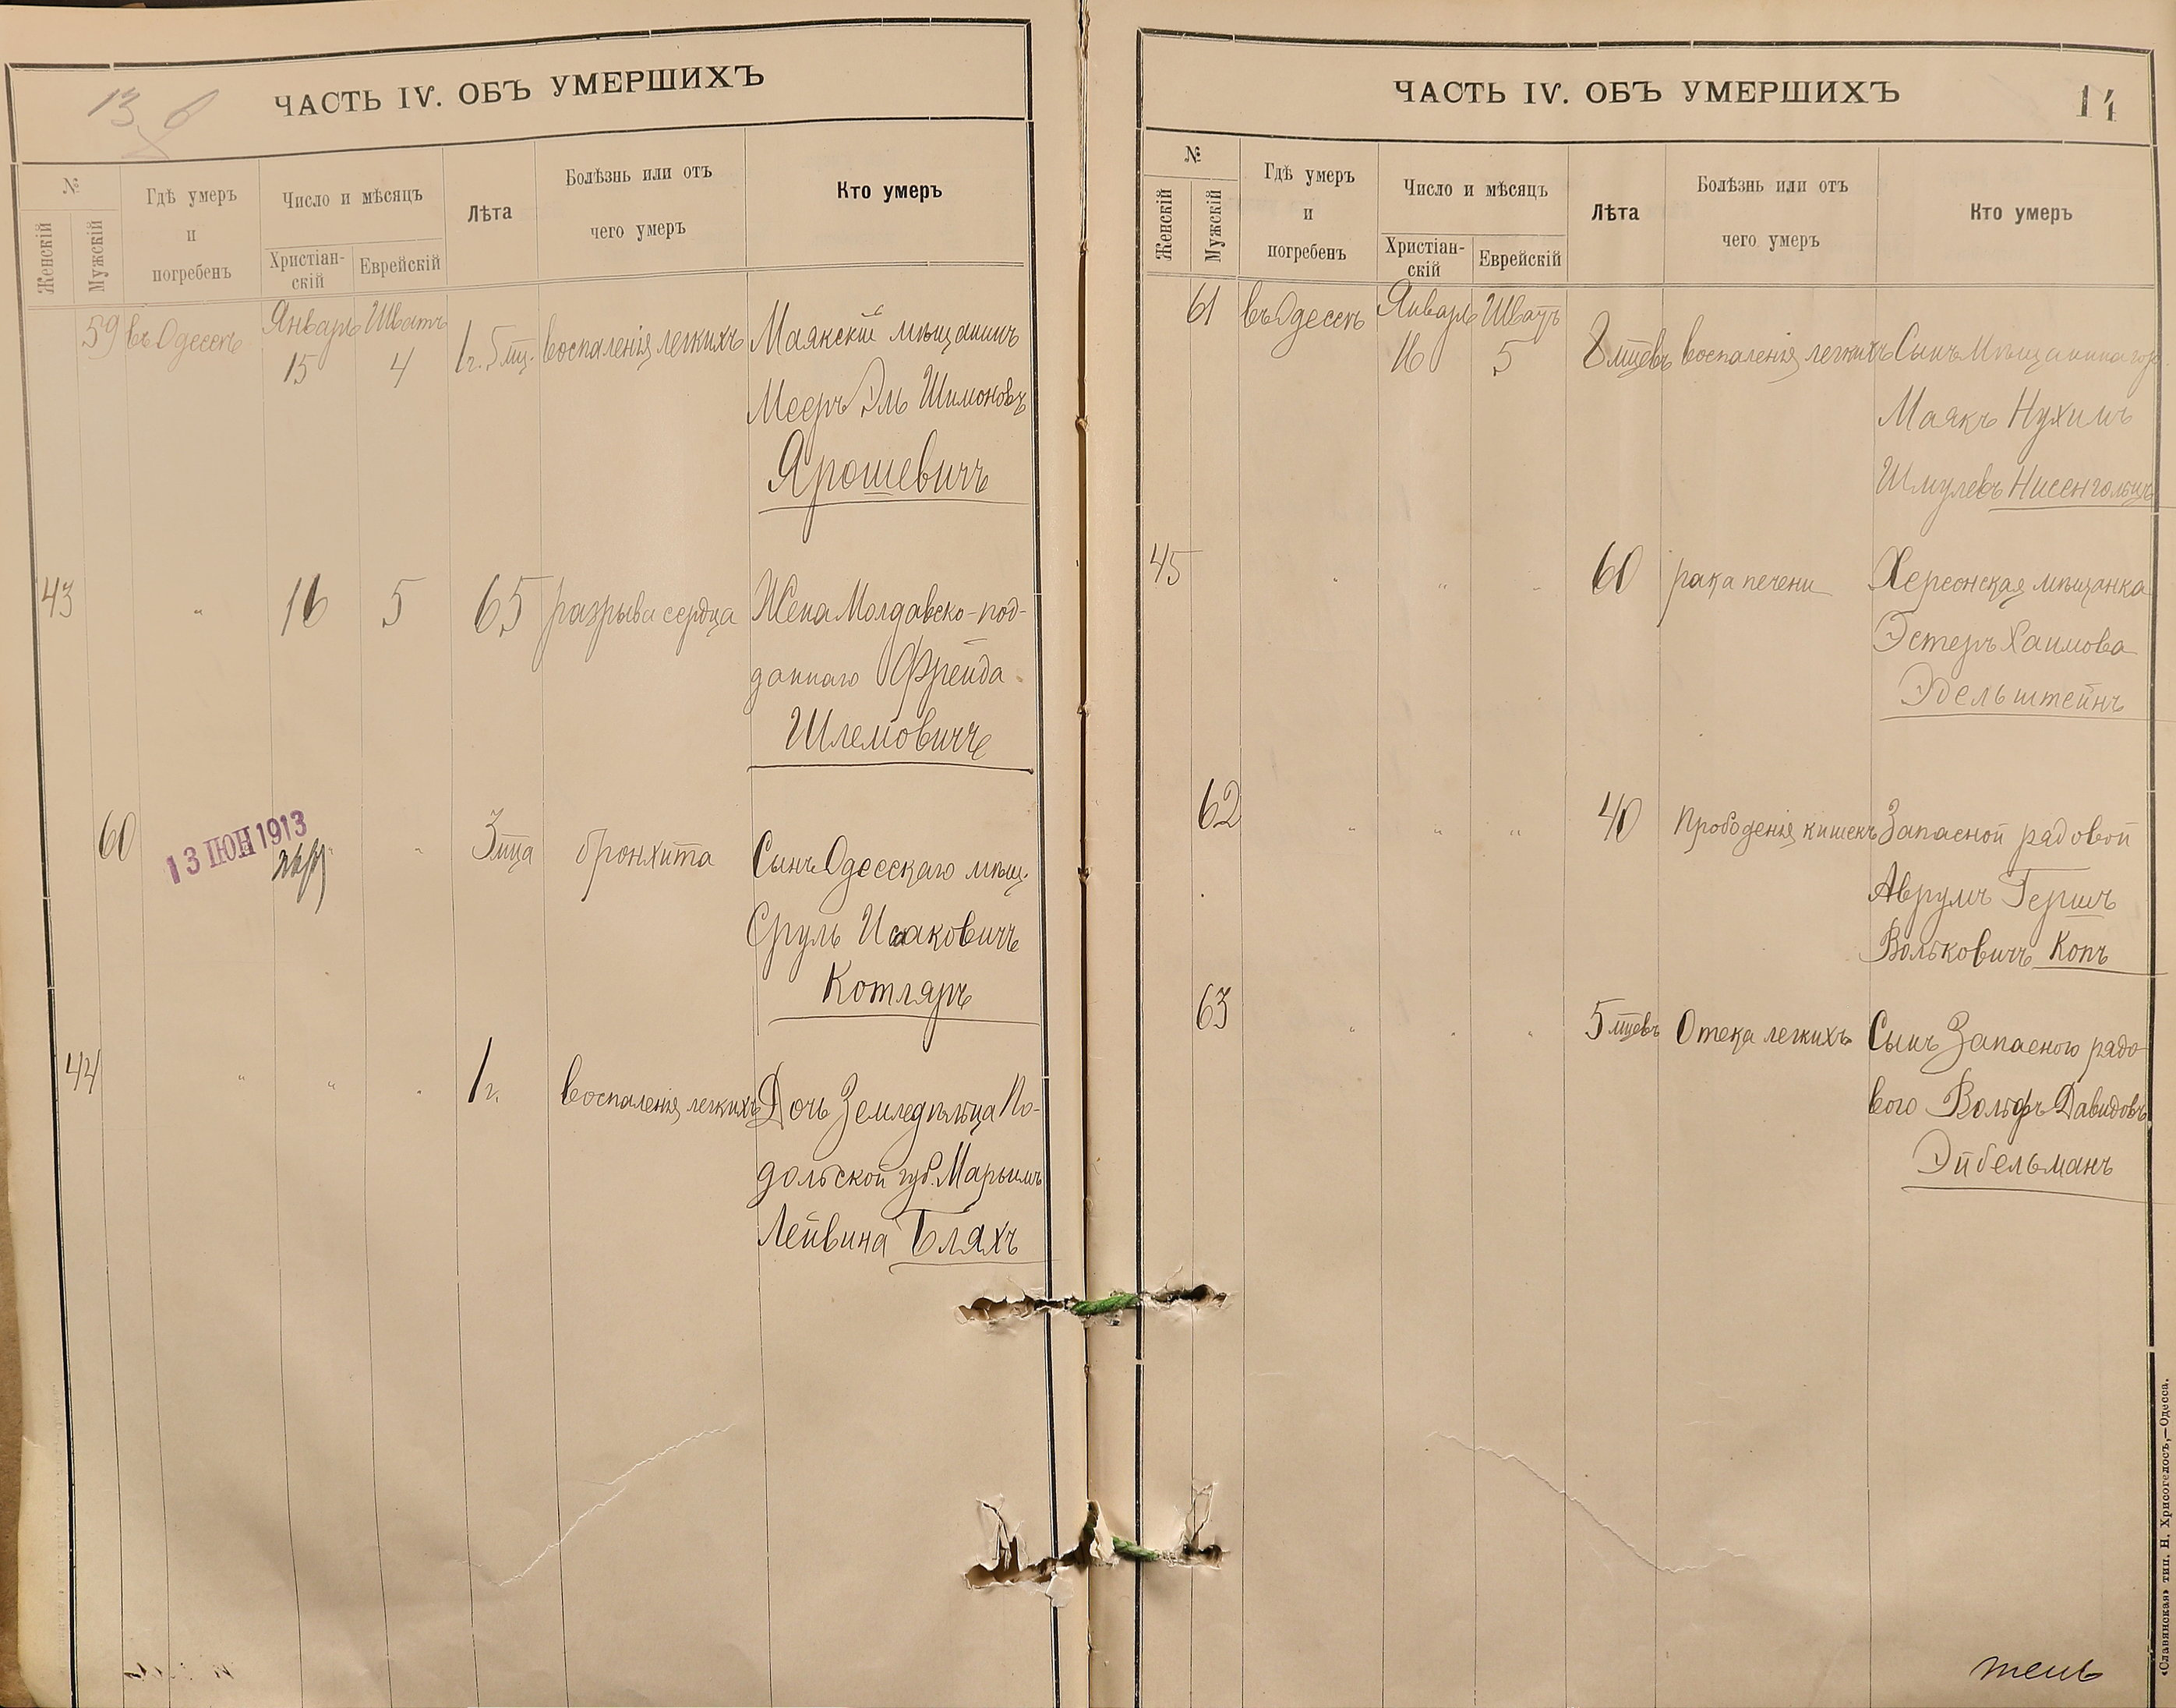 13
ЧАСТЬ IV. ОБЪ УМЕРШИХЪ
№
Женскій
Мужскій
Гдѣ умеръ
и
погребенъ
Число и мѣсяцъ
Христіан-
скій
Еврейскій
Лѣта
Болѣзнь или отъ
чего умеръ
Кто умеръ
59 въ Одессѣ Январь Шватъ
15 4 1 г. 5 мц. воспаленія легкихъ Маякскій мѣщанинъ
Мееръ Эль Шимоновъ
Ярошевичъ
43 " 16 5 65 разрыва сердца Жена Молдавско-под-
даннаго Фрейда
Шлемовичъ
60 " " 3 мца бронхита Сынъ Одесскаго мѣщ.
13 ІЮН 1913
Сруль Исаковичъ
Котляръ
44 " " " 1 г. воспаленія легкихъ Дочь Земледѣльца По-
дольской губ. Марьямъ
Лейвина Бляхъ
ЧАСТЬ IV. ОБЪ УМЕРШИХЪ
14
№
Женскій
Мужскій
Гдѣ умеръ
и
погребенъ
Число и мѣсяцъ
Христіан-
скій
Еврейскій
Лѣта
Болѣзнь или отъ
чего умеръ
Кто умеръ
61 въ Одессѣ Январь Шватъ
16 5 8 мцевъ воспаленія легкихъ Сынъ Мѣщанина гор.
Маякъ Нухимъ
Шмулевъ Нисенгольцъ
45 " " " 60 рака печени Херсонская мѣщанка
Эстеръ Хаимова
Эдельштейнъ
62 " " " 40 Прободенія кишекъ Запасной рядовой
Аврумъ Гершъ
Вольковичъ Копъ
63 " " " 5 мцевъ Отека легкихъ Сынъ Запасного рядо-
вого Вольфъ Давидовъ
Эйбельманъ
«Славянская» тип. Н. Хрисогелосъ,—Одесса.